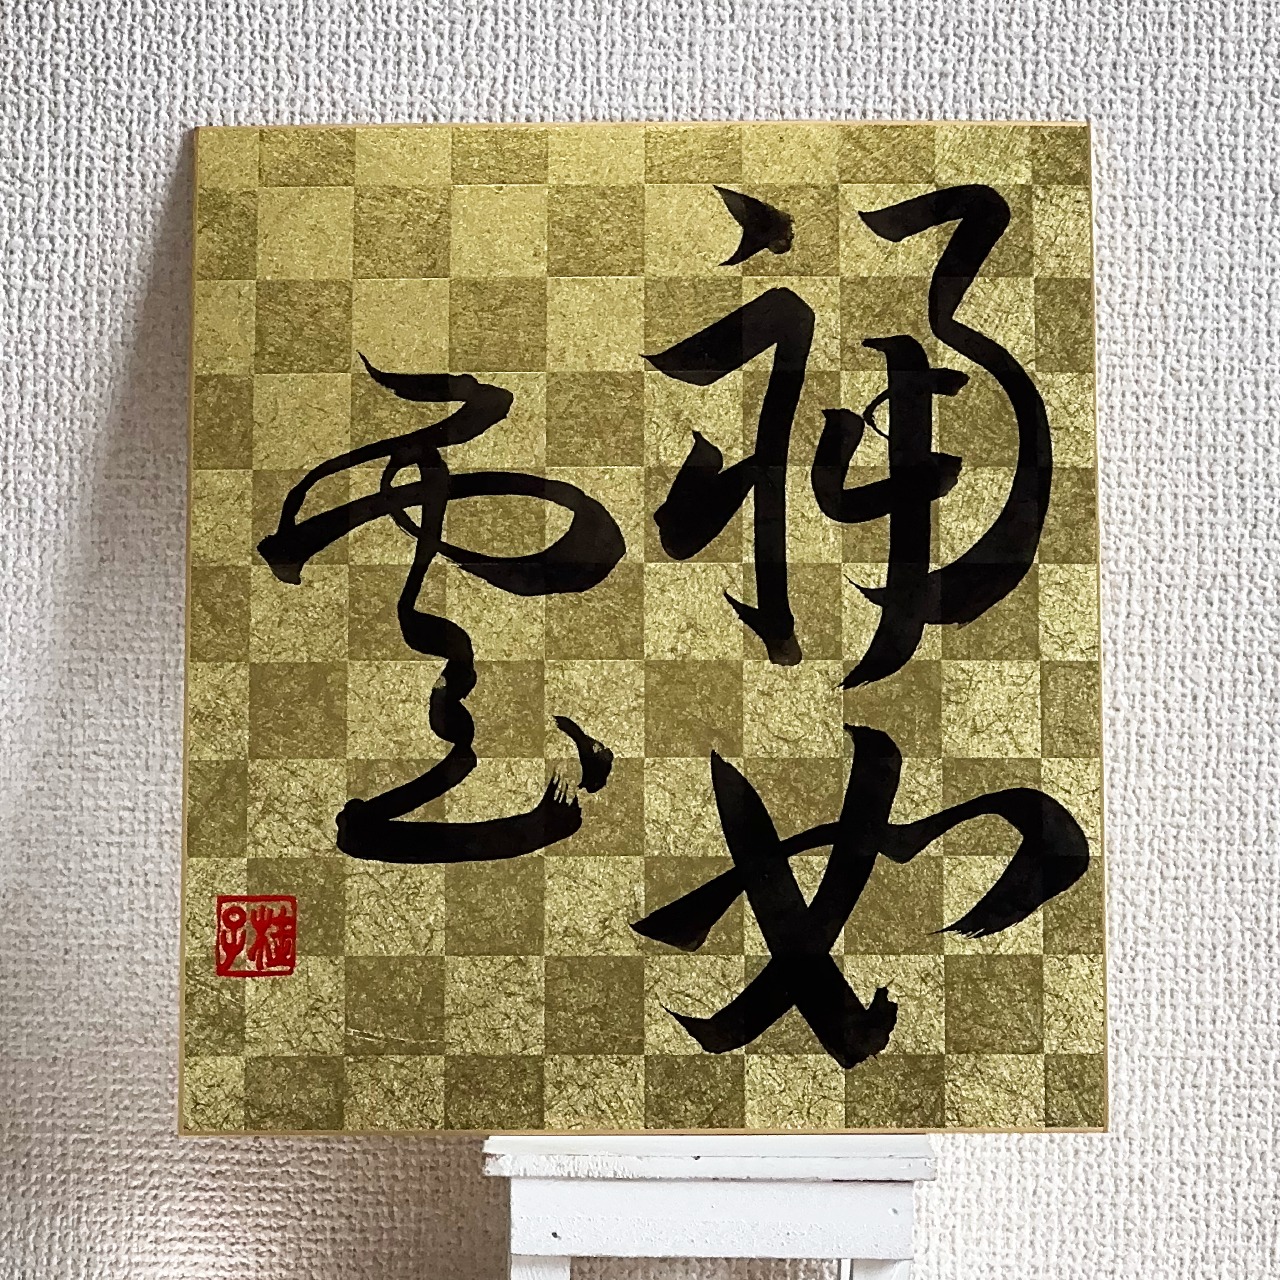 福如
雲
桂子